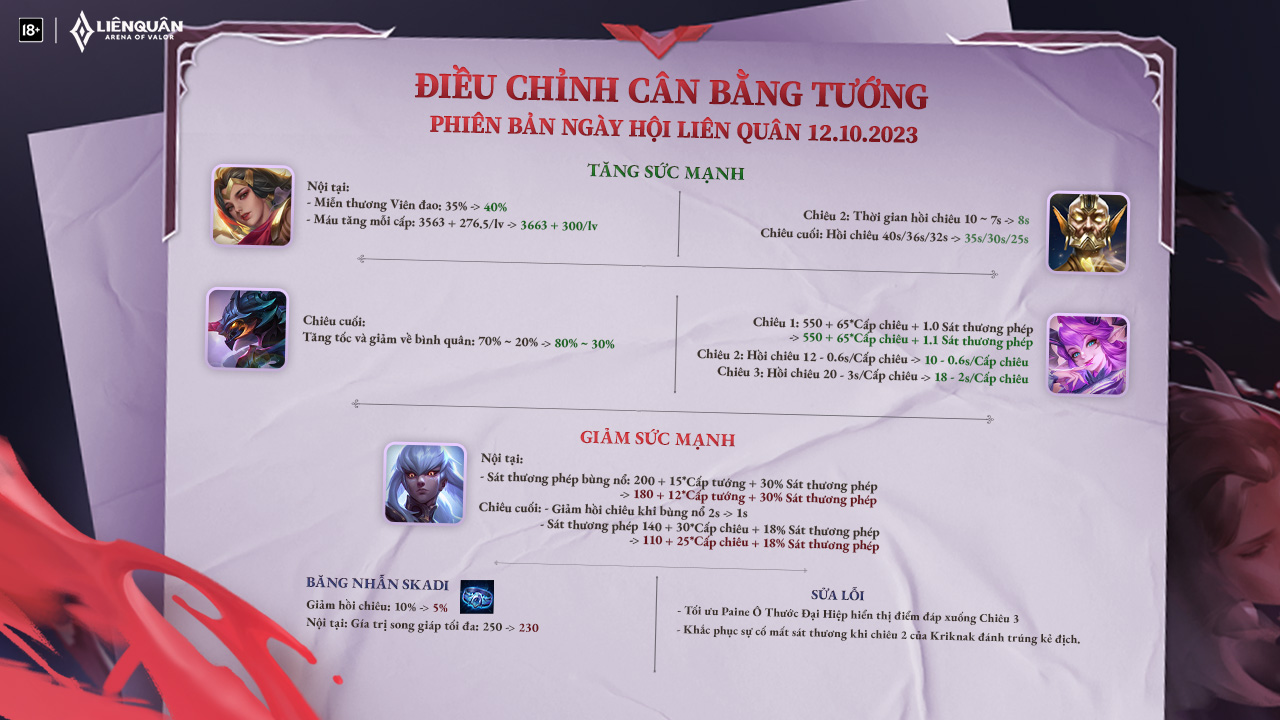 18+
LIÊNQUÂN
ARENA OF VALOR
ĐIỀU CHỈNH CÂN BẰNG TƯỚNG
PHIÊN BẢN NGÀY HỘI LIÊN QUÂN 12.10.2023
TĂNG SỨC MẠNH
Nội tại:
- Miễn thương Viên đao: 35% -> 40%
- Máu tăng mỗi cấp: 3563 + 276,5/lv -> 3663 + 300/lv
Chiêu 2: Thời gian hồi chiêu 10 ~ 7s -> 8s
Chiêu cuối: Hồi chiêu 40s/36s/32s -> 35s/30s/25s
Chiêu cuối:
Tăng tốc và giảm về bình quân: 70% ~ 20% -> 80% ~ 30%
Chiêu 1: 550 + 65*Cấp chiêu + 1.0 Sát thương phép
-> 550 + 65*Cấp chiêu + 1.1 Sát thương phép
Chiêu 2: Hồi chiêu 12 - 0.6s/Cấp chiêu -> 10 - 0.6s/Cấp chiêu
Chiêu 3: Hồi chiêu 20 - 3s/Cấp chiêu -> 18 - 2s/Cấp chiêu
GIẢM SỨC MẠNH
Nội tại:
- Sát thương phép bùng nổ: 200 + 15*Cấp tướng + 30% Sát thương phép
-> 180 + 12*Cấp tướng + 30% Sát thương phép
Chiêu cuối: - Giảm hồi chiêu khi bùng nổ 2s -> 1s
- Sát thương phép 140 + 30*Cấp chiêu + 18% Sát thương phép
-> 110 + 25*Cấp chiêu + 18% Sát thương phép
BĂNG NHẪN SKADI
Giảm hồi chiêu: 10% -> 5%
Nội tại: Gía trị song giáp tối đa: 250 -> 230
SỬA LỖI
- Tối ưu Paine Ô Thước Đại Hiệp hiển thị điểm đáp xuống Chiêu 3
- Khắc phục sự cố mất sát thương khi chiêu 2 của Kriknak đánh trúng kẻ địch.